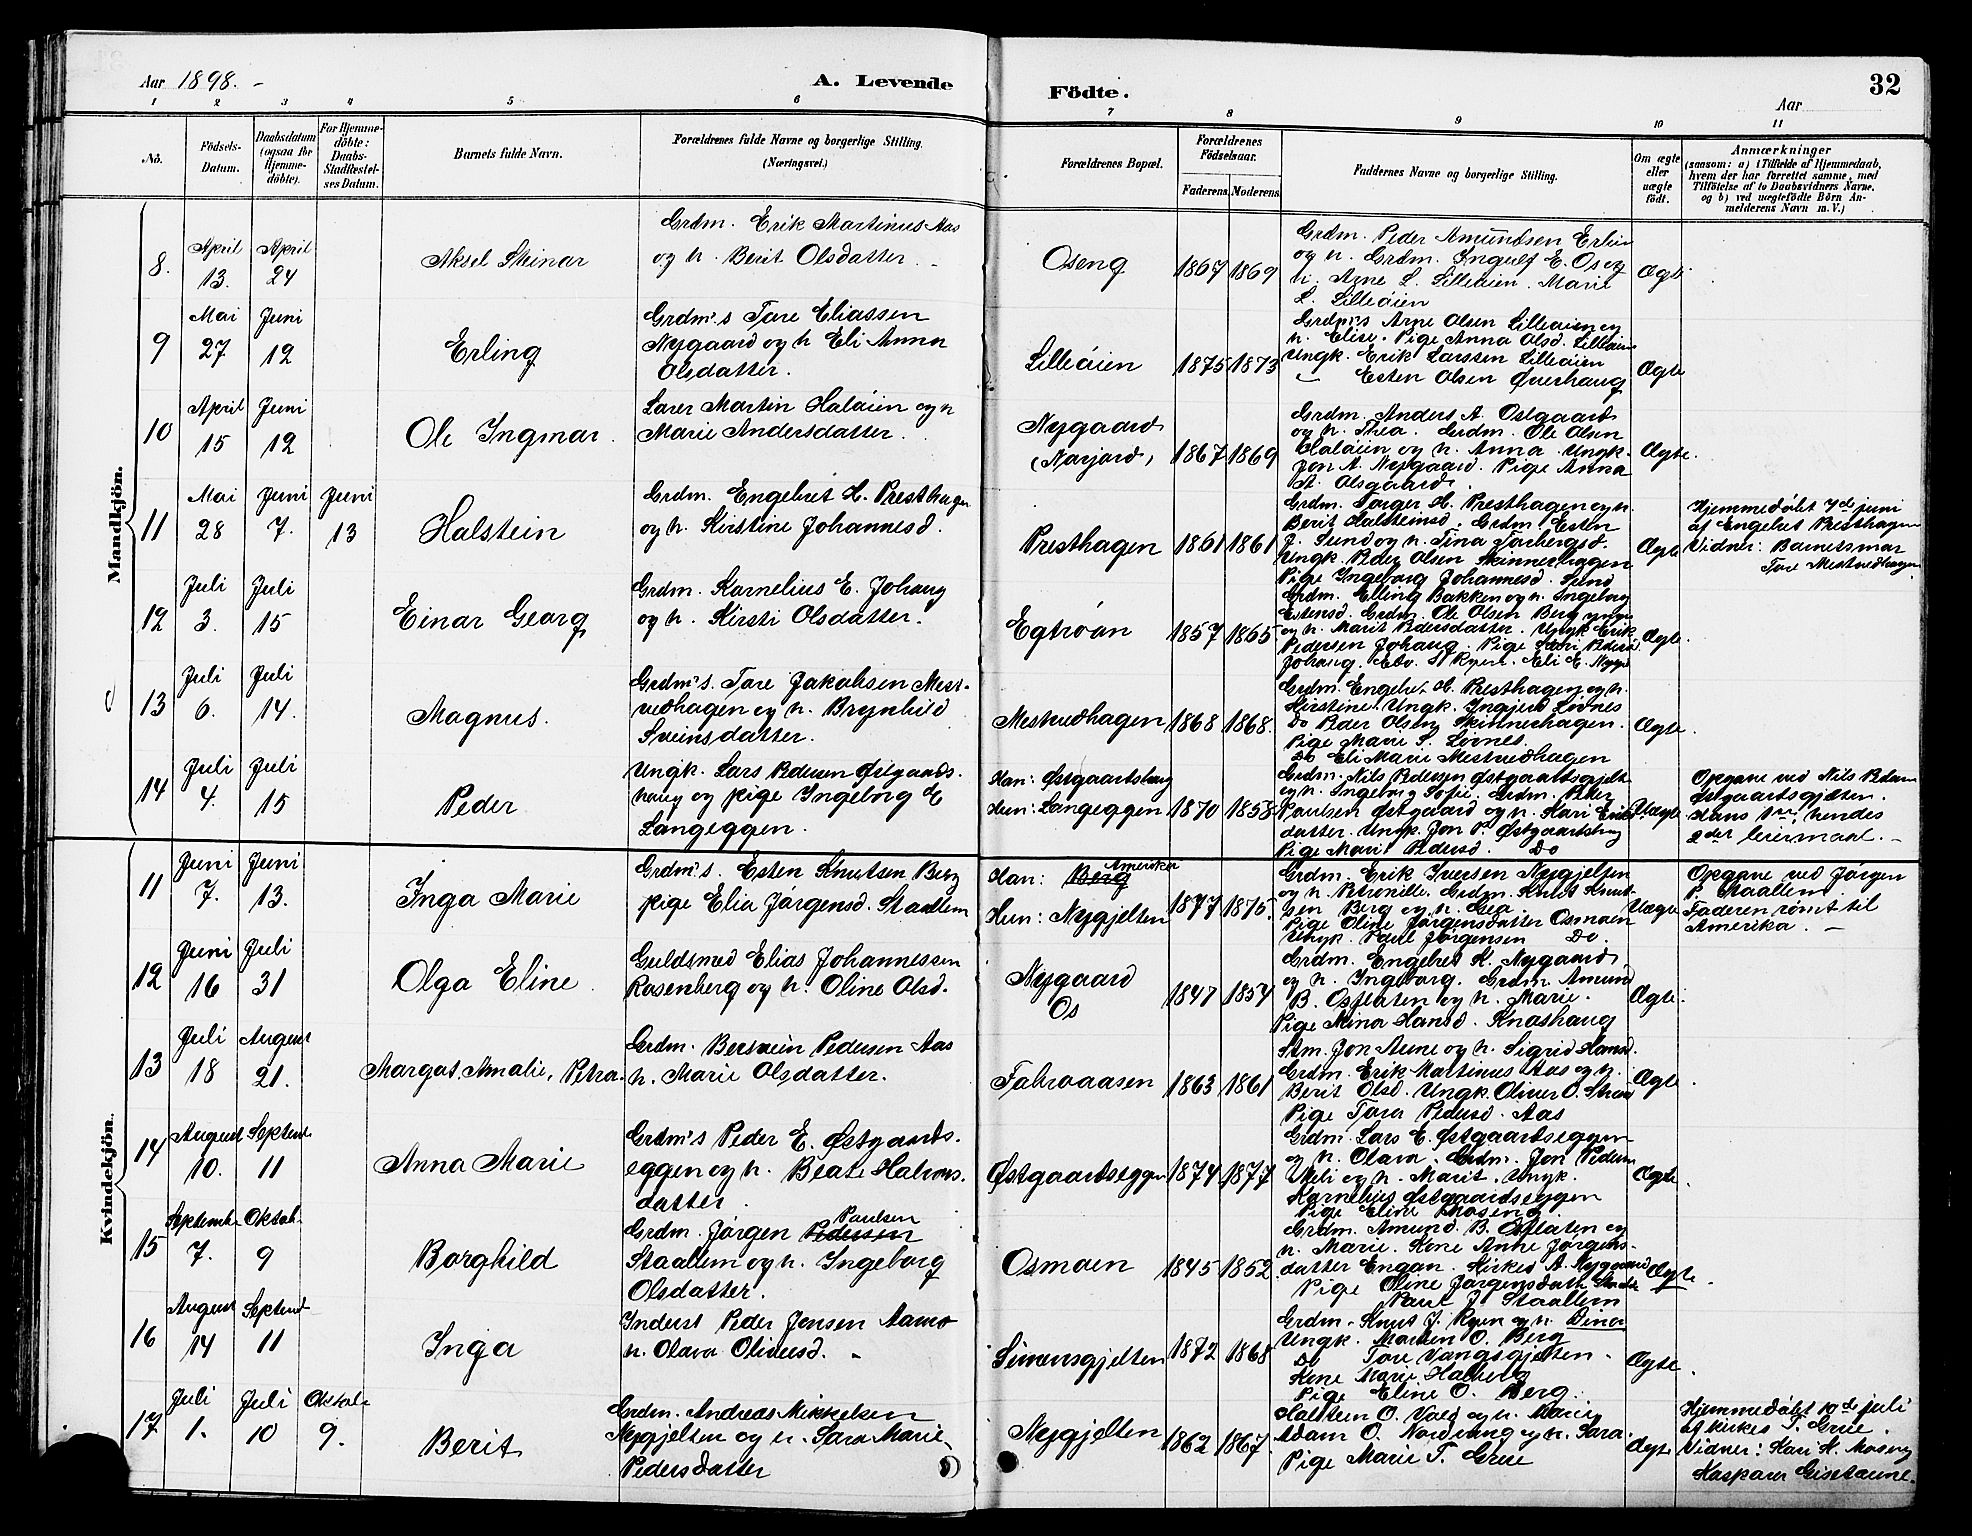 Aar 1898. -
A. Levende
Födte.
32
Aar
1 2 3 4 5 6 7 8 9 10 11
No.
Födsels-
Datum.
Daabsdatum
(ogsaa for
Hjemme-
döbte).
For Hjemme-
döbte:
Daabs-
Stadfæstel-
ses Datum.
Barnets fulde Navn.
Forældrenes fulde Navne og borgerlige Stilling.
(Næringsvei.)
Forældrenes Bopæl.
Forældrenes
Födselsaar.
Faderens. Moderens.
Faddernes Navne og borgerlige Stilling.
Om ægte
eller
uægte
født.
Anmærkninger
(saasom: a) i Tilfælde af Hjemmedaab,
hvem der har forrettet samme, med
Tilföielse af to Daabsvidners Navne,
og b) ved uægtefödte Börn An-
melderens Navn m. V.)
Mandkjön.
8.
April
13.
April
24
Aksel Steinar
Grdm. Erik Martinus Aas
og h. Berit Olsdatter.
Oseng
1867 1869
Grdm. Peder Amundsen Erlien
og h. Grdm. Ingulf E. Oseng
h. Arne L. Lilleåien. Marie
L. Lilleåien
Ægte
9
Mai
27
Juni
12
Erling
Grdm's Tore Eliassen
Nygaard og h. Eli Anna
Olsdatter.
Lilleåien
1875 1873
Grdm's Arne Olsen Lilleåien og
h. Elise. Pige Anna Olsd. Lilleåien
Ungk. Erik Larssen Lilleåien
Esten Olsen Øverhaug
Ægte
10
April
15
Juni
12
Ole Ingmar.
Lærer Martin Halåien og h
Marie Andersdatter.
Nygaard
(Narjord)
1867 1869
Grdm. Anders A. Ostgaard
og h. Thea. Grdm. Ole Olsen
Halåien og h. Anna. Ungk.
Jon A. Nygaard. Pige Anna
A. Olsgaard.
Ægte.
11
Mai
28
Juni
7.
Juni
13
Halstein
Grdm. Engebret H. Presthagen
og h. Kirstine Johannesd.
Presthagen
1861 1861
Grdm. Torger H. Presthagen og h.
Berit Halsteinsd. Grdm. Esten
J. Sund og h. Tina Torbergsd.
Ungk. Peder Olsen Skinnerhagen
Pige Ingeborg Johannesd. Sund
Ægte
Hjemmedøbt 7de juni
af Engebret Presthagen
Vidner: Barnets mor
Tore Mestvedhagen
12
Juli
3.
Juli
15
Einar Georg
Grdm. Kornelius E. Johaug
og h. Kirsti Olsdatter.
Egtrøån
1857 1865
Grdm. Elling Bakken og h. Ingeborg
Estensd. Grdm. Ole Olsen Berg yngre
og h. Marit Pedersdatter. Ungk. Erik
Pedersen Johaug. Pige Kari Pedersd
Johaug. Eli E. Nygjd
Ægte.
13
Juli
6.
Juli
14.
Magnus.
Grdm's. Tore Jakobsen Mest-
vedhagen og h. Brynhild
Sveinsdatter.
Mestvedhagen
1868 1868.
Grdm. Engebr. H. Presthagen og h.
Kirstine. Ungk. Ingjerd Løvnes
Do Peder Olsen Skinnerhagen.
Pige Marie S. Løvnes.
Do Eli Marie Mestvedhagen
Ægte.
14
Juli
4.
Juli
15
Peder
Ungk. Lars Pedersen Østgaards-
haug og pige Ingeborg E
Langeggen.
Han: Østgaardshaug
Hun: Langeggen
1870 1858
Grdm. Nils Pedersen Østgaardsgjelt
og h. Ingeborg Sofie. Grdm. Peder
Paulsen Østgaard og h. Kari Eriks-
datter. Ungk. Jon P. Østgaardshaug
Pige Marit Pedersd. Do
Uægte
Opgave ved Nils Pedersen
Østgaardsgjelten.
Hans 1ste, hendes
2det leiermaal. -
Kvindekjön.
11
Juni
7.
Juni
13.
Inga Marie
Grdm's. Esten Knutsen Berg
pige Elia Jørgensd. Staallem
Han: Berg Amerika
Hun: Nygjelten
1877 1875.
Grdm. Erik Iversen Nygjelten
og h. Petronille. Grdm. Knut Knut-
sen Berg og h. Gea
Pige Oline Jørgensdatter Osmoen
Ungk. Paul Jørgensen Do.
Uægte
Opgave ved Jørgen
P. Staallem.
Faderen rømt til
Amerika. -
12
Juni
16
Juli
31
Olga Eline
Guldsmed Elias Johannessen
Rosenberg og h. Oline Olsd.
Nygaard
Os
1847 1854
Grdm. Engebret H. Nygaard
og h. Ingeborg. Grdm. Amund
B. Osflaten og h. Marie.
Pige Mina Hansd. Knashaug
Ægte.
13
Juli
18
August
21.
Margot Amalie, Petra.
Grdm. Bersvein Pedersen Aas
h. Marie Olsdatter.
1863 1861
Stm. Jon Aune og h. Sigrid Hansd.
Grdm. Erik Martinus Aas og h.
Berit Olsd. Ungk. Oliver O. Strand
Pige Tora Pedersd. Aas
Ægte.
14
August
10.
Septemb.
11
Anna Marie
Grdm's Peder E. Østgaards-
eggen og h. Beate Halvors-
datter.
Østgaardseggen
1874 1877
Grdm. Lars E. Østgaardseggen
og h. Olava. Grdm. Jon Pedersen
Uteli og h. Marit. Ungk.
Kornelius Østgaardseggen
Pige Eline Moseng
Ægte.
15
Septemb.
7.
Oktob.
9
Borghild
Grdm. Jørgen Pedersen Paulsen
Staallem og h. Ingeborg
Olsdatter.
Osmoen
1845 1852.
Grdm. Amund B. Osflaten og
h. Marie. Kone Anne Jørgens-
datter Engan. Kirkes. A. Nygaard
Pige Oline Jørgensdatt. Staalle
Paul J. Staallem
Ægte.
16
August
14
Septemb
11
Inga
Inderst Peder Jensen Aamo
h. Olava Oliversd. -
Simensgjelten
1872 1868
Grdm. Knut J. Ryen og h. Dina
Ungk. Morten O. Berg
Do Tore Vangsgjelten.
Kone Marie Halberg
Pige Eline O. Berg.
Ægte.
17
Juli
1.
Juli
10
Oktob.
9.
Berit
Grdm. Andreas Mikkelsen
Nygjelten og h. Sara Marie
Pedersdatter
Nygjelten
1862 1867
Halstein O. Vold og h. Marie
Adam O. Nordvang og h. Sara.
Pige Marie T. Grue
Ægte
Hjemmedøbt 10de juli
af kirkes. T. Grue.
Vidner: Kari H. Moseng
Kaspara Gisetaune.